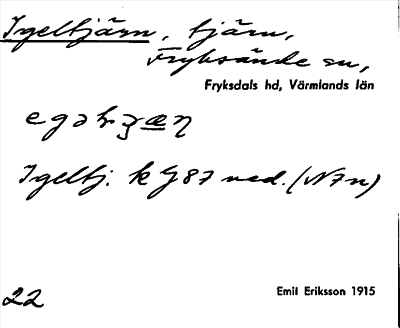 Igeltjärn, tjärn,
Fryksände sn,
Fryksdals hd, Värmlands län
Igeltj. k G 87 ned. (N7n)
22
Emil Eriksson 1915